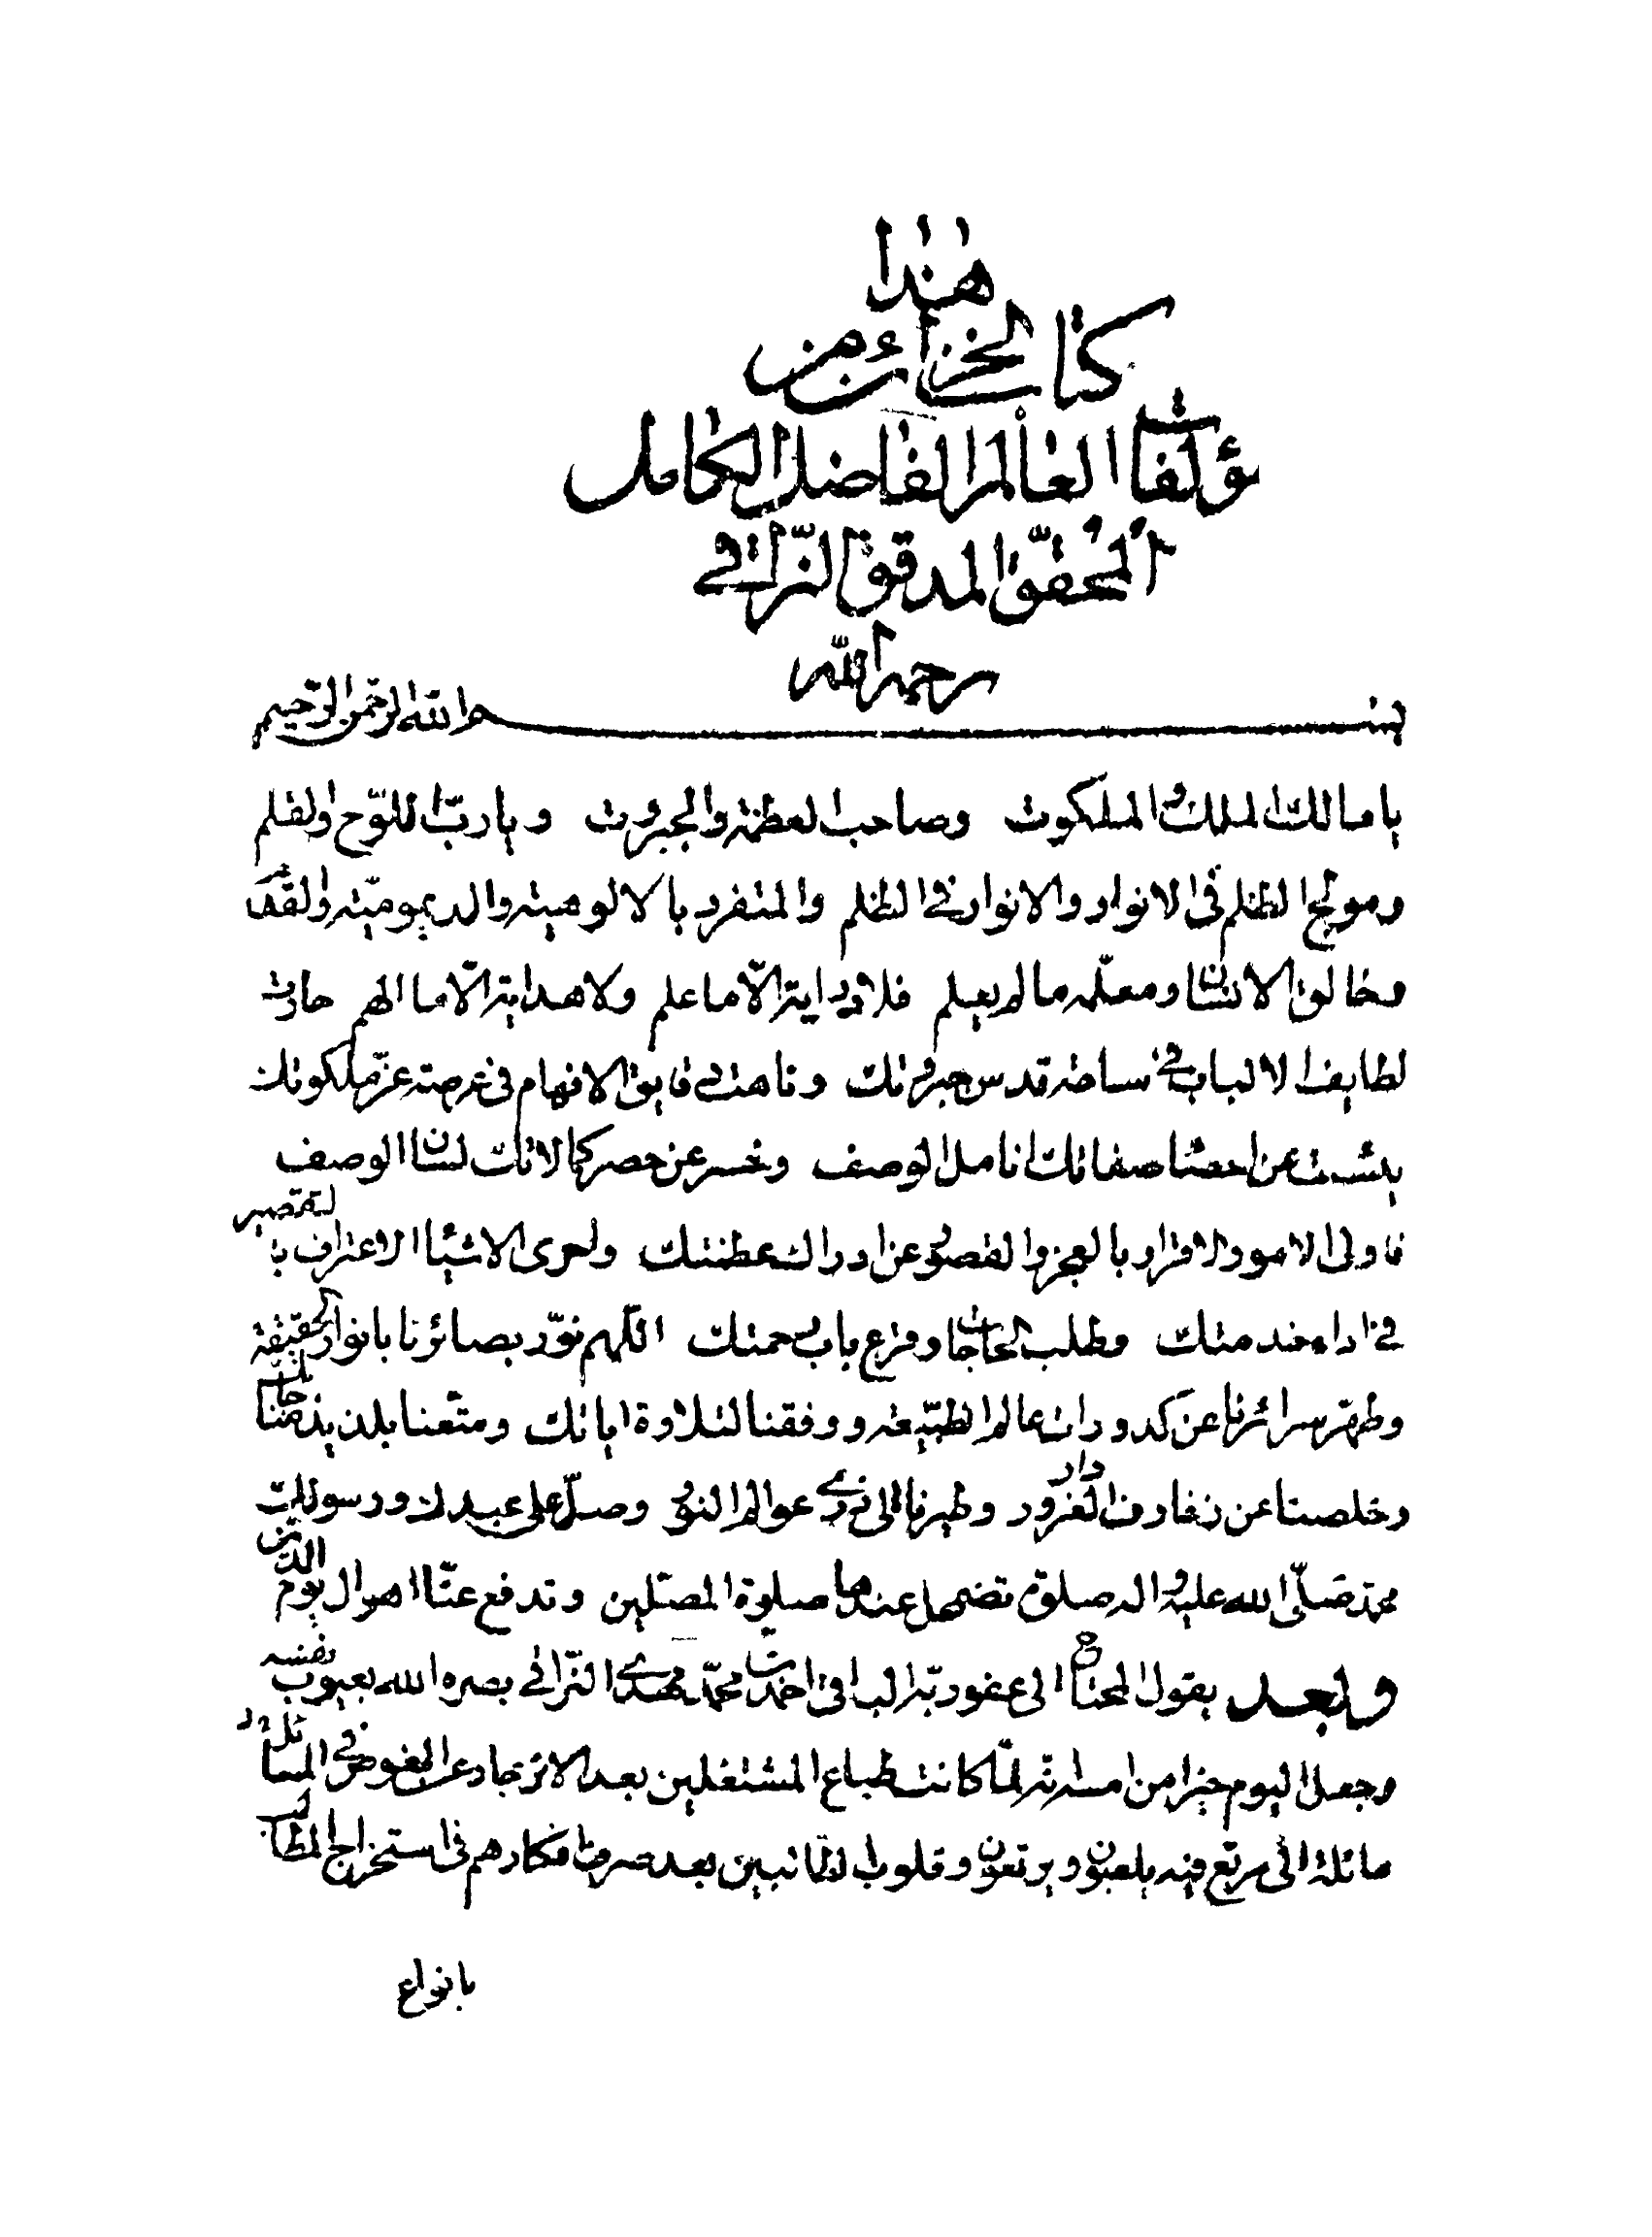 هذا
كتاب الخزائن من
مؤلفات العالم الفاضل الكامل
المحقق المدقق النراقي
رحمه الله
بسم الله الرحمن الرحيم
يا مالك الملك والملكوت وصاحب العظمة والجبروت ويا رب اللوح والقلم
ومولج الظلم في الانوار والانوار في الظلم والمتفرد بالالوهية والديمومية والقدم
وخالق الانسان ومعلمه ما لم يعلم فلا دراية الا ما علم ولا هداية الا ما الهم حارت
لطايف الالباب في ساحة قدس جبروتك وتاهت دقايق الافهام في عرصة عز ملكوتك
يئست عن احصاء صفاتك انامل الوصف وخسر عن حصر كمالاتك لسان الوصف
فاولى الامور الاقرار بالعجز والقصور عن ادراك عظمتك واحرى الاشياء الاعتراف بالتقصير
في اداء خدمتك وطلب الحاجات وقرع باب رحمتك اللهم نور بصائرنا بانوار الحقيقة
وطهر سرائرنا عن كدورات عالم الطبيعة ووفقنا لتلاوة اياتك ومتعنا بلذيذ مناجاتك
وخلصنا عن زخارف دار الغرور وطيرنا الى ذرى عوالم النور وصل على عبدك ورسولك
محمد صلى الله عليه واله صلوة تضمحل عندها صلوة المصلين وتدفع عنا اهوال يوم الدين
وبعد يقول المحتاج الى عفو ربه الباقي احمد بن محمد مهدي النراقي بصره الله بعيوب نفسه
وجعل اليوم خيرا من امسه انه لما كانت طباع المشتغلين بعد الانزجار عن الغوض في المسائل
مائلة الى مرتع فيه يلعبون ويرتعون وقلوب الطالبين بعد صرف افكارهم في استخراج المطالب
بانواع